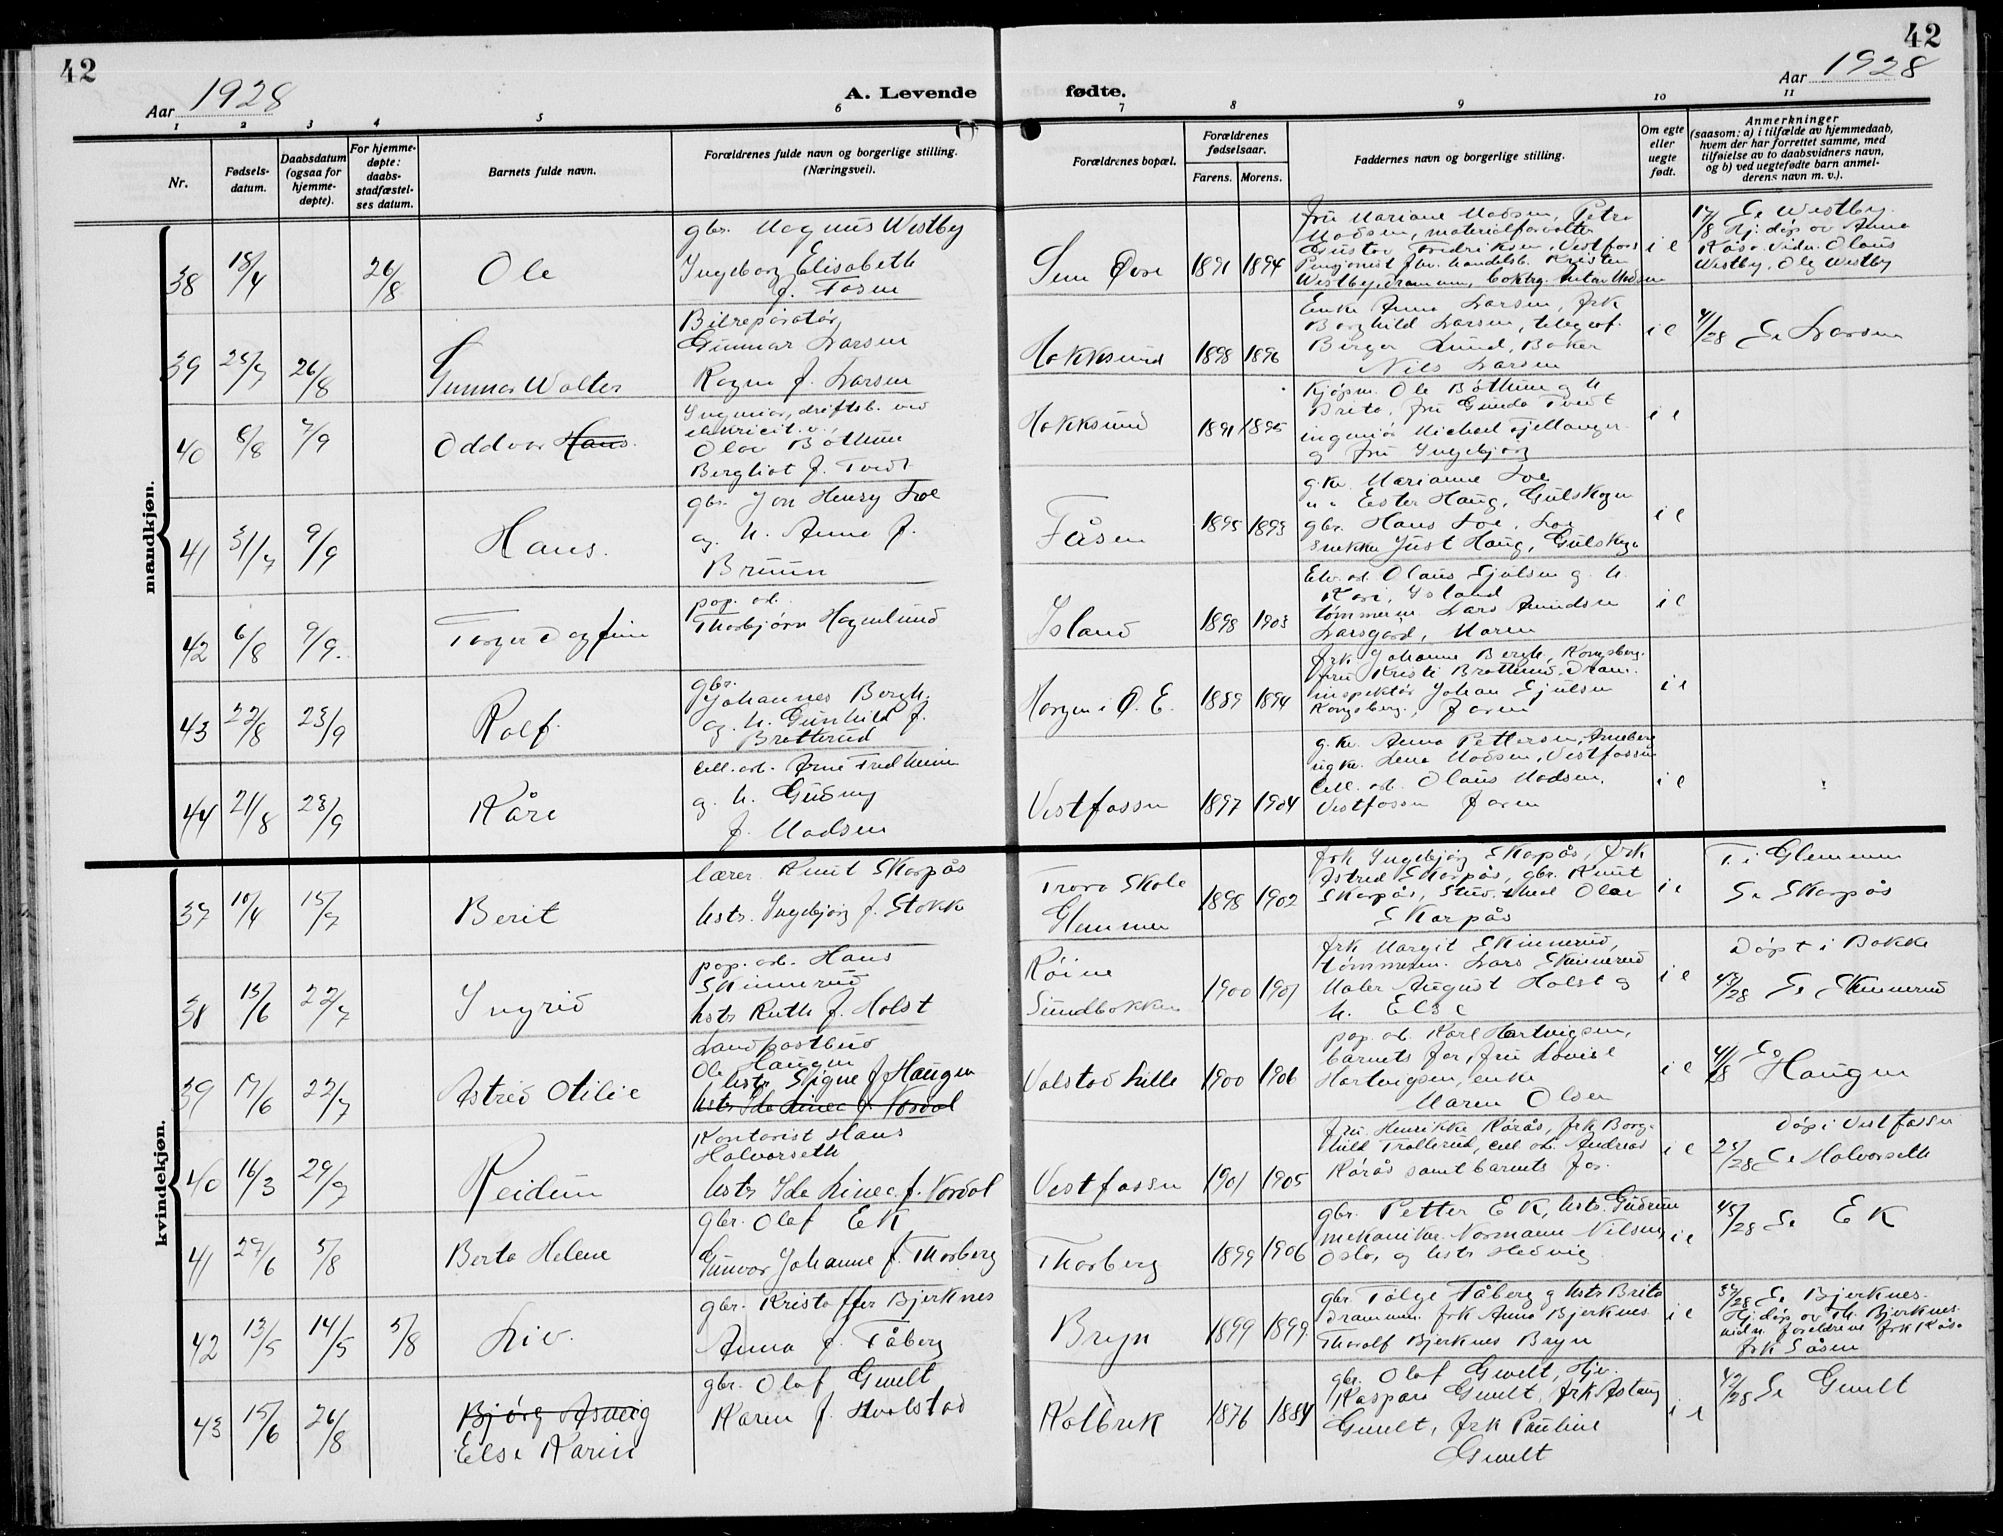 42
42
Aar 1928
A. Levende
fødte.
Aar 1928
1 2 3 4 5 6 7 8 9 10 11
Nr.
Fødsels-
datum.
Daabsdatum
(ogsaa for
hjemme-
døpte).
For hjemme-
døpte:
daabs-
stadfæstel-
ses datum.
Barnets fulde navn.
Forældrenes fulde navn og borgerlige stilling.
(Næringsvei).
Forældrenes bopæl.
Forældrenes
fødselsaar.
Farens. Morens.
Faddernes navn og borgerlige stilling.
Om egte
eller
uegte
født.
Anmerkninger
(saasom: a) i tilfælde av hjemmedaab,
hvem der har forrettet samme, med
tilføielse av to daabsvidners navn,
og b) ved uegtefødte barn anmel-
derens navn m. v.).
mandkjøn.
38 18/4 26/8 Ole
gbr. Magnus Westby
Ingeborg Elisabeth
f. Fosen
Sem Øvre 1891 1894
fru Mariane Madsen, Petra
Madsen, materialforvalter
Gustav Fredriksen, Vestfoss
Pensjonist fhv. handelsb. Kristen
Westby, Drammen, Anton Madsen
i e
17/8 Se Westby.
Hj. døp av Anna
Røse. Vidn. Olaus
Westby, Ole Westby
39 25/7 26/8 Gunnar Walter
Bilreparatør
Gunnar Larsen
Ragna f. Larsen
Hokksund 1898 1896
Enke Anna Larsen, frk
Borghild Larsen, telegraf.
Berger Lund, Baker
Nils Larsen
i e
41/28 Se Larsen
40 8/8 2/9 Oddvar Hans.
Ingeniør, driftsb. ved
elektricit. v.
Olav Bøthun
Bergliot f. Tvedt
Hokksund 1891 1895
Kjøpm. Ole Bøthun og h.
Brita, fru Gunda Tvedt
ingeniør Michael Fjellanger
og fru Ingebjørg
i e
41 31/7 9/9 Hans.
gbr. Jon Henry Loe
og h. Anna f.
Bruun
Fåsen 1895 1893
g.kv. Marianne Loe
" " Ester Haug, Gulskogen
gbr. Hans Loe, Loe
snekker Just Haug, Gulskogen
i e
42 6/8 9/9. Torger Dagfinn
pap. arb.
Thorbjørn Hagenlund
Island 1898 1903
Elv. arb. Olaus Gjulsen og h.
Kari, Island
tømmerm. Lars Amundsen
Larsgard, Maren
i e
43 22/8 23/9 Rolf.
gbr.
Johannes Bergh.
og h. Gunhild f.
Bratterud
Horgen i Ø. E. 1889 1894
frk Johanne Bergh, Kongsberg.
fru Kristi Bratterud, Dram.
inspektør Johan Gjulsen
Kongsberg, faren
i e
44 21/8 23/9 Kåre
Cell. arb. Arne Fredheim
og h. Gudny
f. Madsen
Vestfossen 1897 1904
g. kv. Anna Pettersen, Arneberg
ug.kv. Lena Madsen, Vestfossen
Cell. arb. Olaus Madsen,
Vestfossen faren
i e
kvindekjøn.
37 10/4 15/7 Berit
lærer Knut Skarpås
hstr. Ingebjørg f. Stokke
Trara Skole
Glemmen
1898 1902
frk Ingebjørg Skarpås, frk
Astrid Skarpås, gbr. Knut
Skarpås, Stud. med Olav
Skarpås
i e
F. i Glemmen
Se Skarpås
38 13/6 22/7 Ingrid
pap. arb. Hans
Skinnerud
hstr Ruth f. Holst
Røine
Sundbakken
1900 1901
frk Margit Skinnerud,
tømmerm. Lars Skinnerud
Maler August Holst og
h. Else
i e
Døpt i Bakke
43/28 Se Skinnerud
39 17/6 22/7 Astrid Otilie
Landpostbud
Ole Haugen
hstr Signe f. Haugen
hstr Ida Linea f. Nordal
Valstad lille 1900 1906
pap. arb. Karl Hartvigsen,
barnets far, fru Lovise
Hartvigsen, enke
Maren Olsen
i e
41/28 Se
Haugen
40 16/3 29/7 Reidun
Kontorist Hans
Halvorseth
hstr Ida Linea f. Nordal
Vestfossen 1901 1905
fru Henrikke Kårås, frk Borg-
hild Trollerud, cell arb. Andreas
Kårås samt barnets far.
i e
Døp i Vestfossen
25/28 Se Halvorseth
41 27/6 5/8 Berta Helene
gbr. Olaf Ek
Gunvor Johanne f. Thorberg
Thorberg 1899 1906
gbr. Petter Ek, hstr. Gudrun
mekaniker Normann Nilsen,
Oslo, og hstr Hedvig.
i e
45/28 Se Ek
42 13/5 14/5 5/8 Liv.
gbr. Kristoffer Bjerknes
Anna f. Tåberg
Bryn 1899 1899.
gbr. Tølge Tåberg og hstr Brita
Drammen. frk Anna Bjerknes
Thoralf Bjerknes Bryn
i e
37/28 Se Bjerknes.
Hj. døp av Th. Bjerknes.
vidn. foreldrene frk Røse
frk Såsen
43 15/6 26/8 Bjørg Asveig
Else Karin
gbr. Olaf Gunelt
Karen f. Hvalstad
Kolbrek 1876 1884
gbr. Olaf Gunelt, Hjv.
Kaspara Gunelt, frk Astaug
Gunelt, frk Pauline
Gunelt
i e
42/28 Se Gunelt